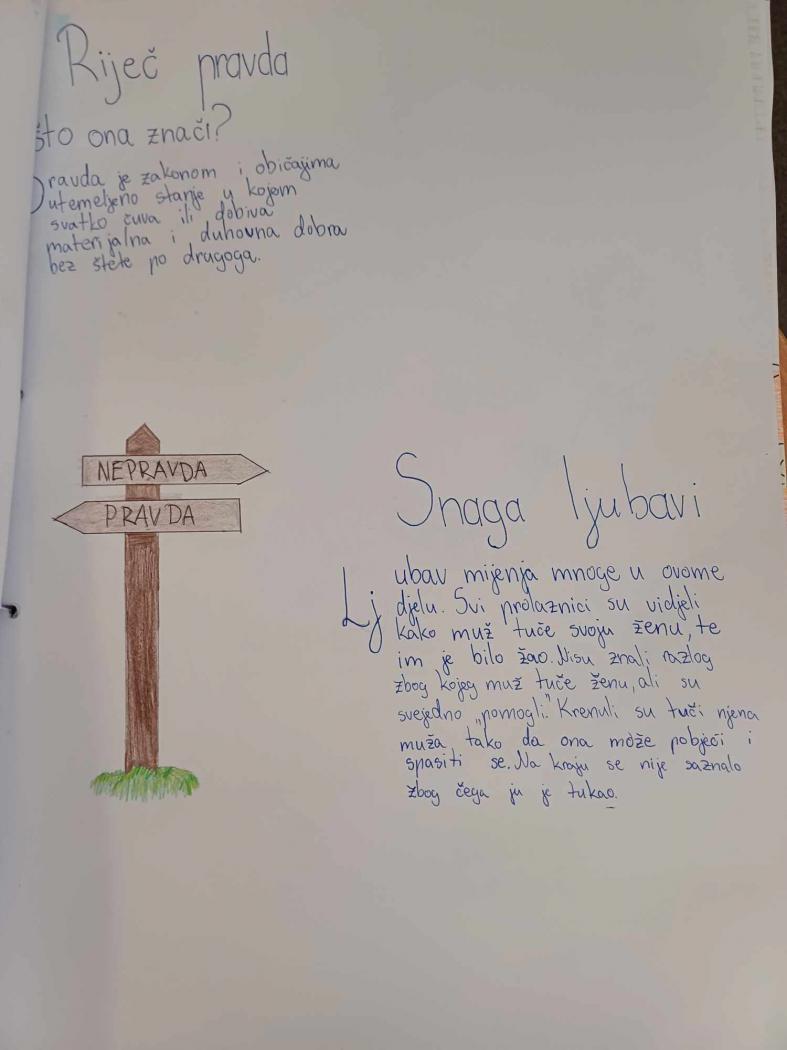 Riječ pravda
što ona znači?
Pravda je zakonom i običajima
utemeljeno stanje u kojem
svatko čuva ili dobiva
materijalna i duhovna dobra
bez štete po drugoga.
NEPRAVDA
PRAVDA
Snaga ljubavi
Ljubav mijenja mnoge u ovome
djelu. Svi prolaznici su vidjeli
kako muž tuče svoju ženu, te
im je bilo žao. Nisu znali razlog
zbog kojeg muž tuče ženu, ali su
svejedno „pomogli." Krenuli su tući njena
muža tako da ona može pobjeći i
spasiti se. Na kraju se nije saznalo
zbog čega ju je tukao.